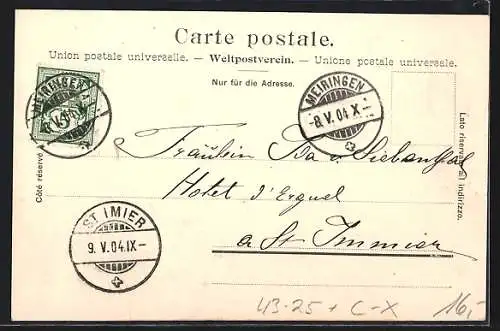 Carte postale.
Union postale universelle. — Weltpostverein. — Unione postale universale.
Nur für die Adresse.
MEIRINGEN
5
MEIRINGEN
-8.V.04 X-
Côté réservé
Lato riservato all indirizzo.
Fräulein Ida v. Siebenthal
Hotel d'Erguel
a St. Immier
ST IMIER
9.V.04.IX-
43-25 + C-X
16,-